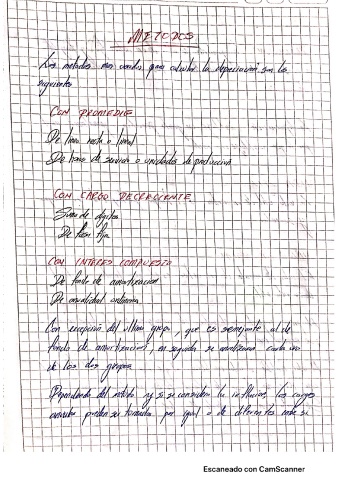 METODOS
Los metodos mas usados para calcular la depreciación son los
siguientes
CON PROMEDIO
De linea recta o lineal
De horas de servicio o unidades de producción
CON CARGO DECRECIENTE
Suma de digitos
De tasa fija
CON INTERES COMPUESTO
De fondo de amortizacion
De anualidad ordinaria
Con excepción del ultimo grupo, que es semejante al de
fondo de amortización, en seguida se analizaran cada uno
de los dos grupos
Dependiendo del metodo y si se considera la inflacion, los cargos
anuales pueden ser tomados por igual o de diferentes
Escaneado con CamScanner